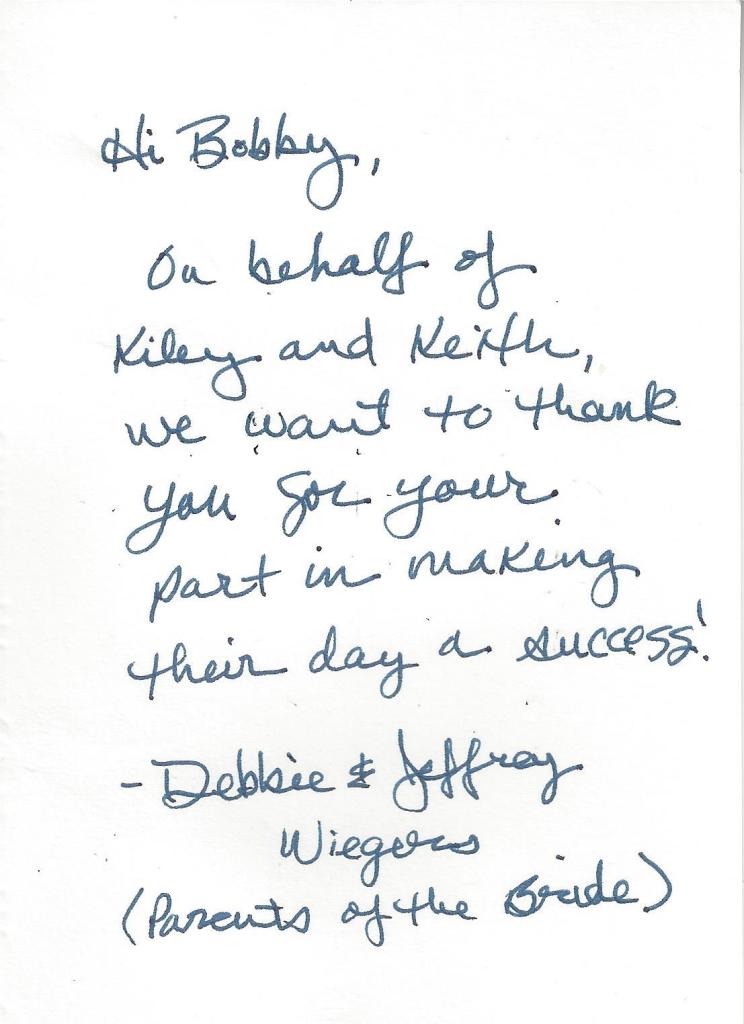 Hi Bobby,
On behalf of
Kiley and Keith,
we want to thank
you for your
part in making
their day a success!
- Debbie & Jeffrey
Wiegers
(Parents of the Bride)